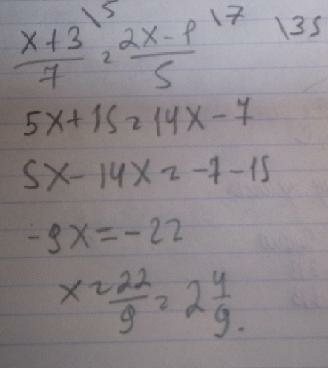 (x+3)/7 \5 = (2x-1)/5 \7 \35
5x+15=14x-7
5x-14x=-7-15
-9x=-22
x=22/9=2 4/9.